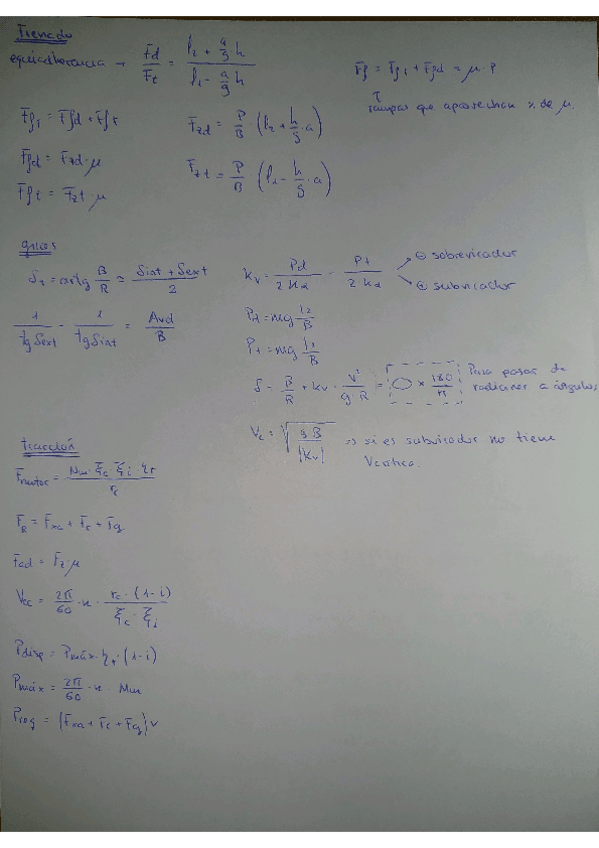 Frenado
equiadherencia → Fd/Ft = (l2 + a/g h)/(l1 - a/g h)
Ff = Ff1 + Ffd = μ · P
Ffr = Ffd + Fft
Fzd = P/B · (l2 + h/g · a)
Ffd = Fzd · μ
Fzt = P/B (l1 - h/g · a)
Fft = Fzt · μ
giros
δ = arctg B/R ≈ (δint + δext)/2
Kv = Pd/2Kα - Pt/2Kα
⊖ sobrevirador
⊕ subvirador
1/tg δext - 1/tg δint = Avd/B
Pd = mg l2/B
Pt = mg l1/B
δ = B/R + Kv · V²/gR = × 180/π
Para pasar de
radianes a ángulos
Vc = √(gB/|Kv|) ⇒ si es subvirador no tiene
Vcrítica.
tracción
Fmotor = Mm · ξc · ξj · ηt / rc
FR = Fxa + Fr + Fg
Fad = Fz · μ
Vcc = 2π/60 · n · rc · (1-i) / ξc · ξj
Pdisp = Pmáx · ηt · (1-i)
Pmáx = 2π/60 · n · Mm
Preq = (Fxa + Fr + Fg) v